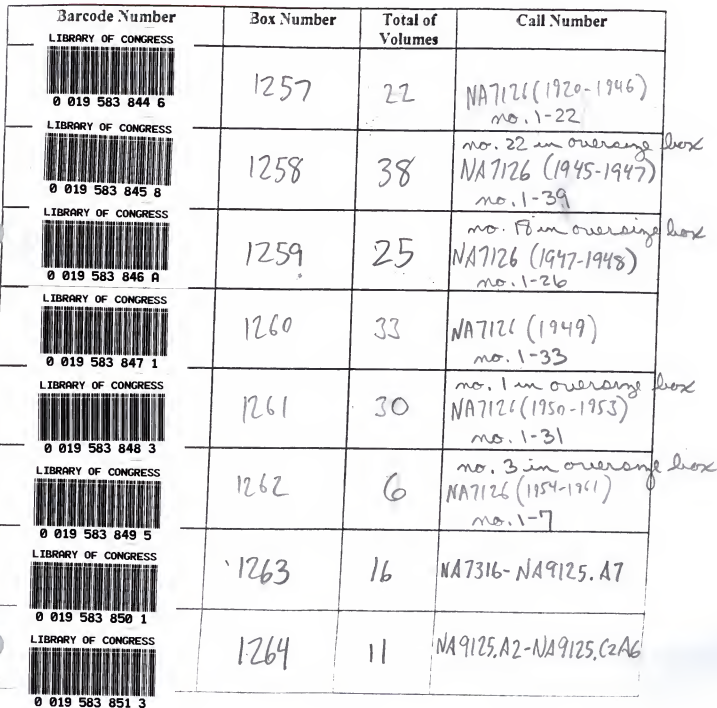 Barcode Number Box Number Total of Volumes Call Number
LIBRARY OF CONGRESS
0 019 583 844 6
1257 22 NA7126 (1920-1946)
no. 1-22
LIBRARY OF CONGRESS
0 019 583 845 8
1258 38 no. 22 in oversize box
NA7126 (1945-1947)
no. 1-39
LIBRARY OF CONGRESS
0 019 583 846 A
1259 25 no. 18 in oversize box
NA7126 (1947-1948)
no. 1-26
LIBRARY OF CONGRESS
0 019 583 847 1
1260 33 NA7126 (1949)
no. 1-33
LIBRARY OF CONGRESS
0 019 583 848 3
1261 30 no. 1 in oversize box
NA7126 (1950-1953)
no. 1-31
LIBRARY OF CONGRESS
0 019 583 849 5
1262 6 no. 3 in oversize box
NA7126 (1954-1961)
no. 1-7
LIBRARY OF CONGRESS
0 019 583 850 1
1263 16 NA7316-NA9125.A7
LIBRARY OF CONGRESS
0 019 583 851 3
1264 11 NA9125.A2-NA9125.C2A6